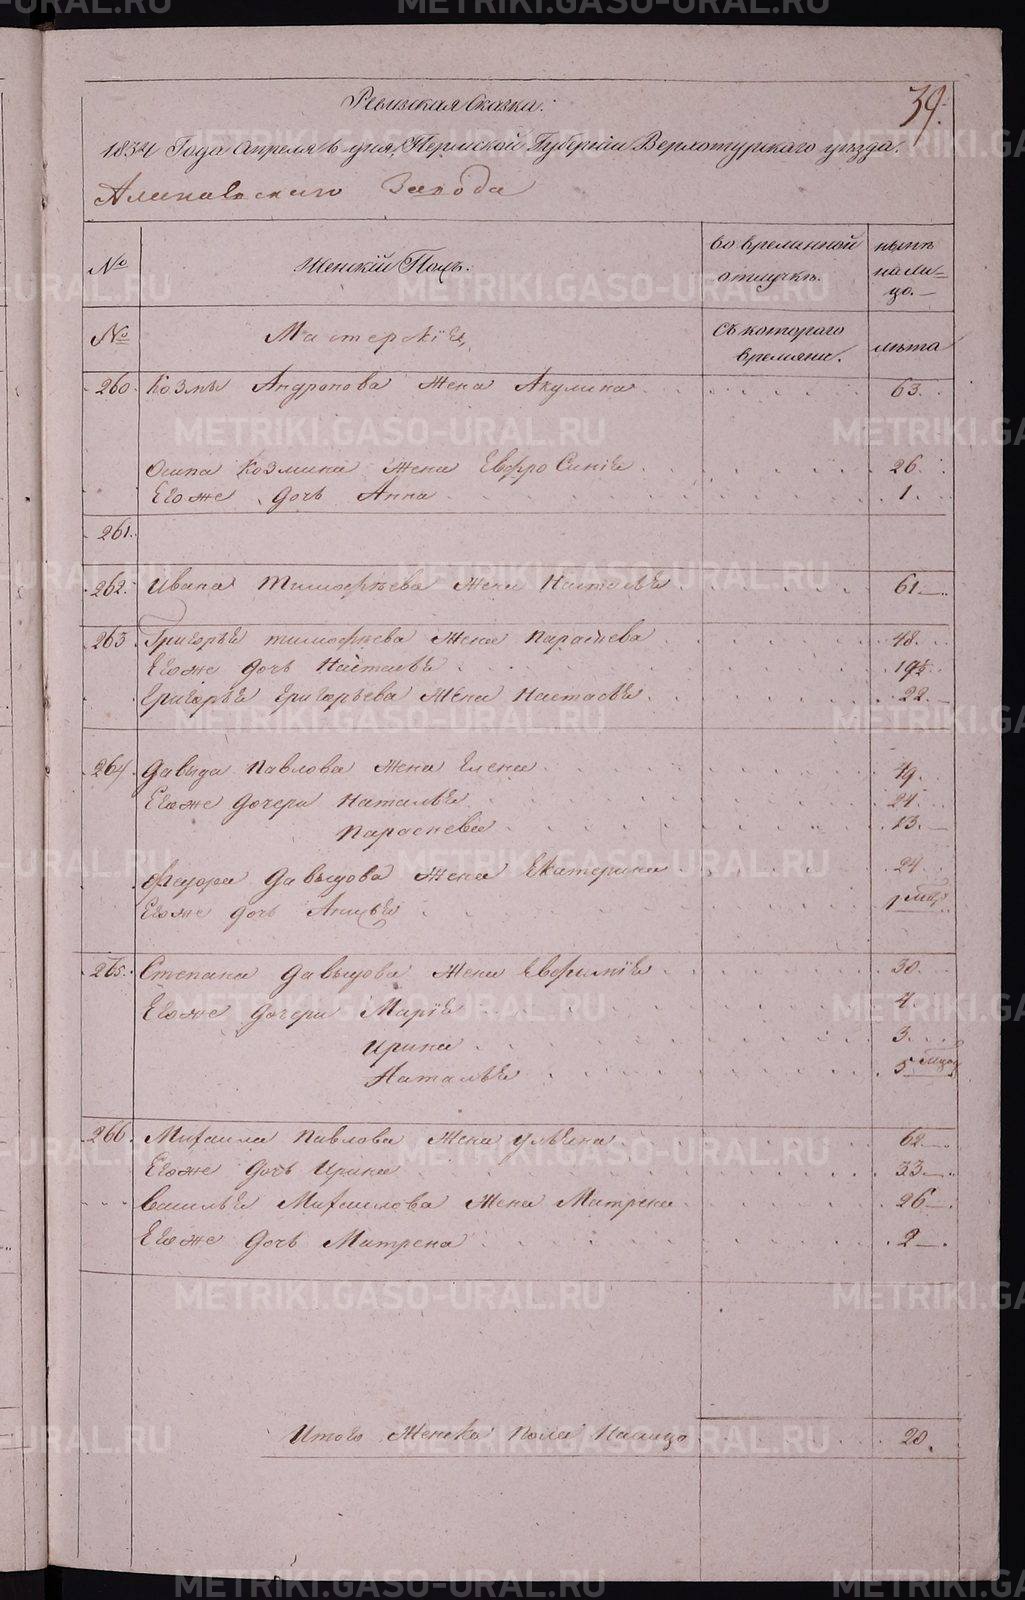 39.
Ревизская Сказка.
1834 Года Апреля 6 дня, Пермской Губернiи Верхотурскаго уѣзда.
Алапаевскаго Завода
№ Женскiй Полъ. во временной отлучкѣ. нынѣ на ли=цо.
№ Мастерскiя съ котораго времяни. лѣта
260. Козмы Андронова жена Акулина 63.
Осипа Козмина жена Евфросинiя 26.
Егоже дочь Анна 1.
261.
262. Ивана Тимофѣева жена Настасья 61.
263 Григорья тимофѣева жена Парасковья 48.
Егоже дочь Настасья 19½.
Григорья Григорьева жена Настасья 22.
264. Давыда Павлова жена Елена 49.
Егоже дочери Наталья 24.
Парасковья 13.
Федора Давыдова жена Екатерина 24.
Егоже дочь Анисья 1 мѣс.
265. Степана Давыдова жена Евфимiя 30.
Егоже дочери Марiя 4
Ирина 3.
Наталья 5 мѣсяц
266. Михаила Павлова жена Ульяна 62.
Егоже дочь Ирина 33.
Василья Михаилова жена Матрена 26.
Егоже дочь Матрена 2.
Итого Женска пола налицо 20.
METRIKI.GASO-URAL.RU